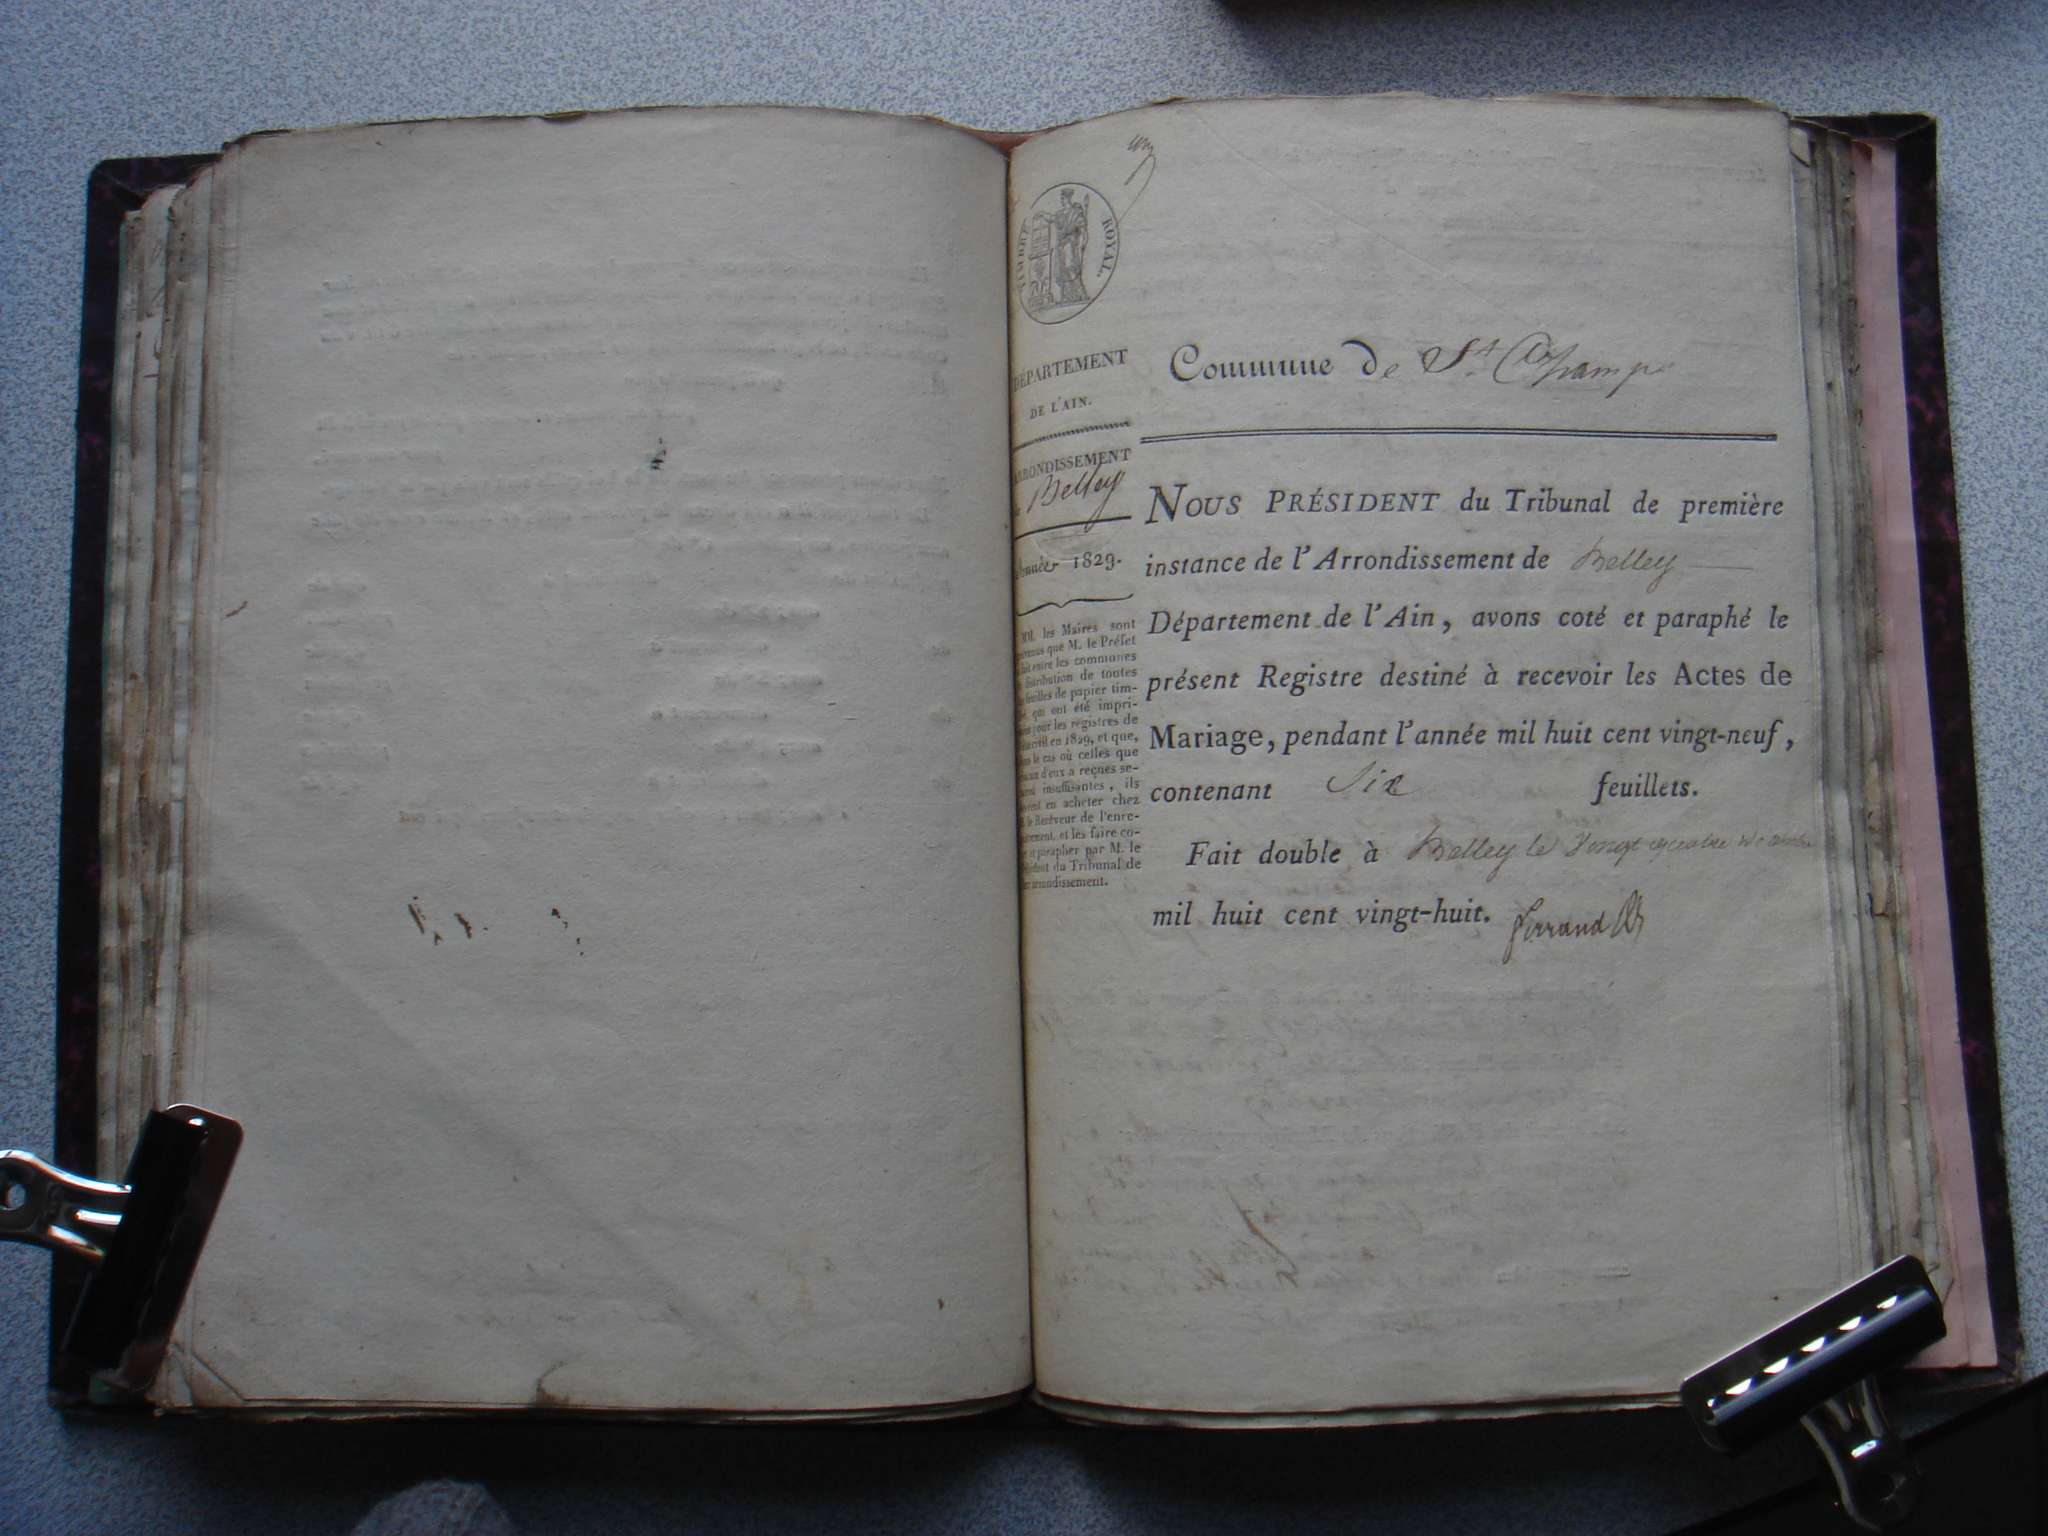 ROYAL.
DÉPARTEMENT
DE L'AIN.
ARRONDISSEMENT
Belley
Année 1829.
MM. les Maires sont
que M. le Préfet
entre les communes
distribution de toutes
feuilles de papier tim-
qui ont été impri-
pour les registres de
civil en 1829, et que,
le cas où celles que
d'eux a reçues se-
insuffisantes, ils
en acheter chez
le Receveur de l'enre-
et les faire co-
et parapher par M. le
du Tribunal de
arrondissement.
Commune de St. Champ
NOUS PRÉSIDENT du Tribunal de première
instance de l'Arrondissement de Belley
Département de l'Ain, avons coté et paraphé le
présent Registre destiné à recevoir les Actes de
Mariage, pendant l'année mil huit cent vingt-neuf,
contenant Six feuillets.
Fait double à Belley le vingt quatre
mil huit cent vingt-huit. Ferrand